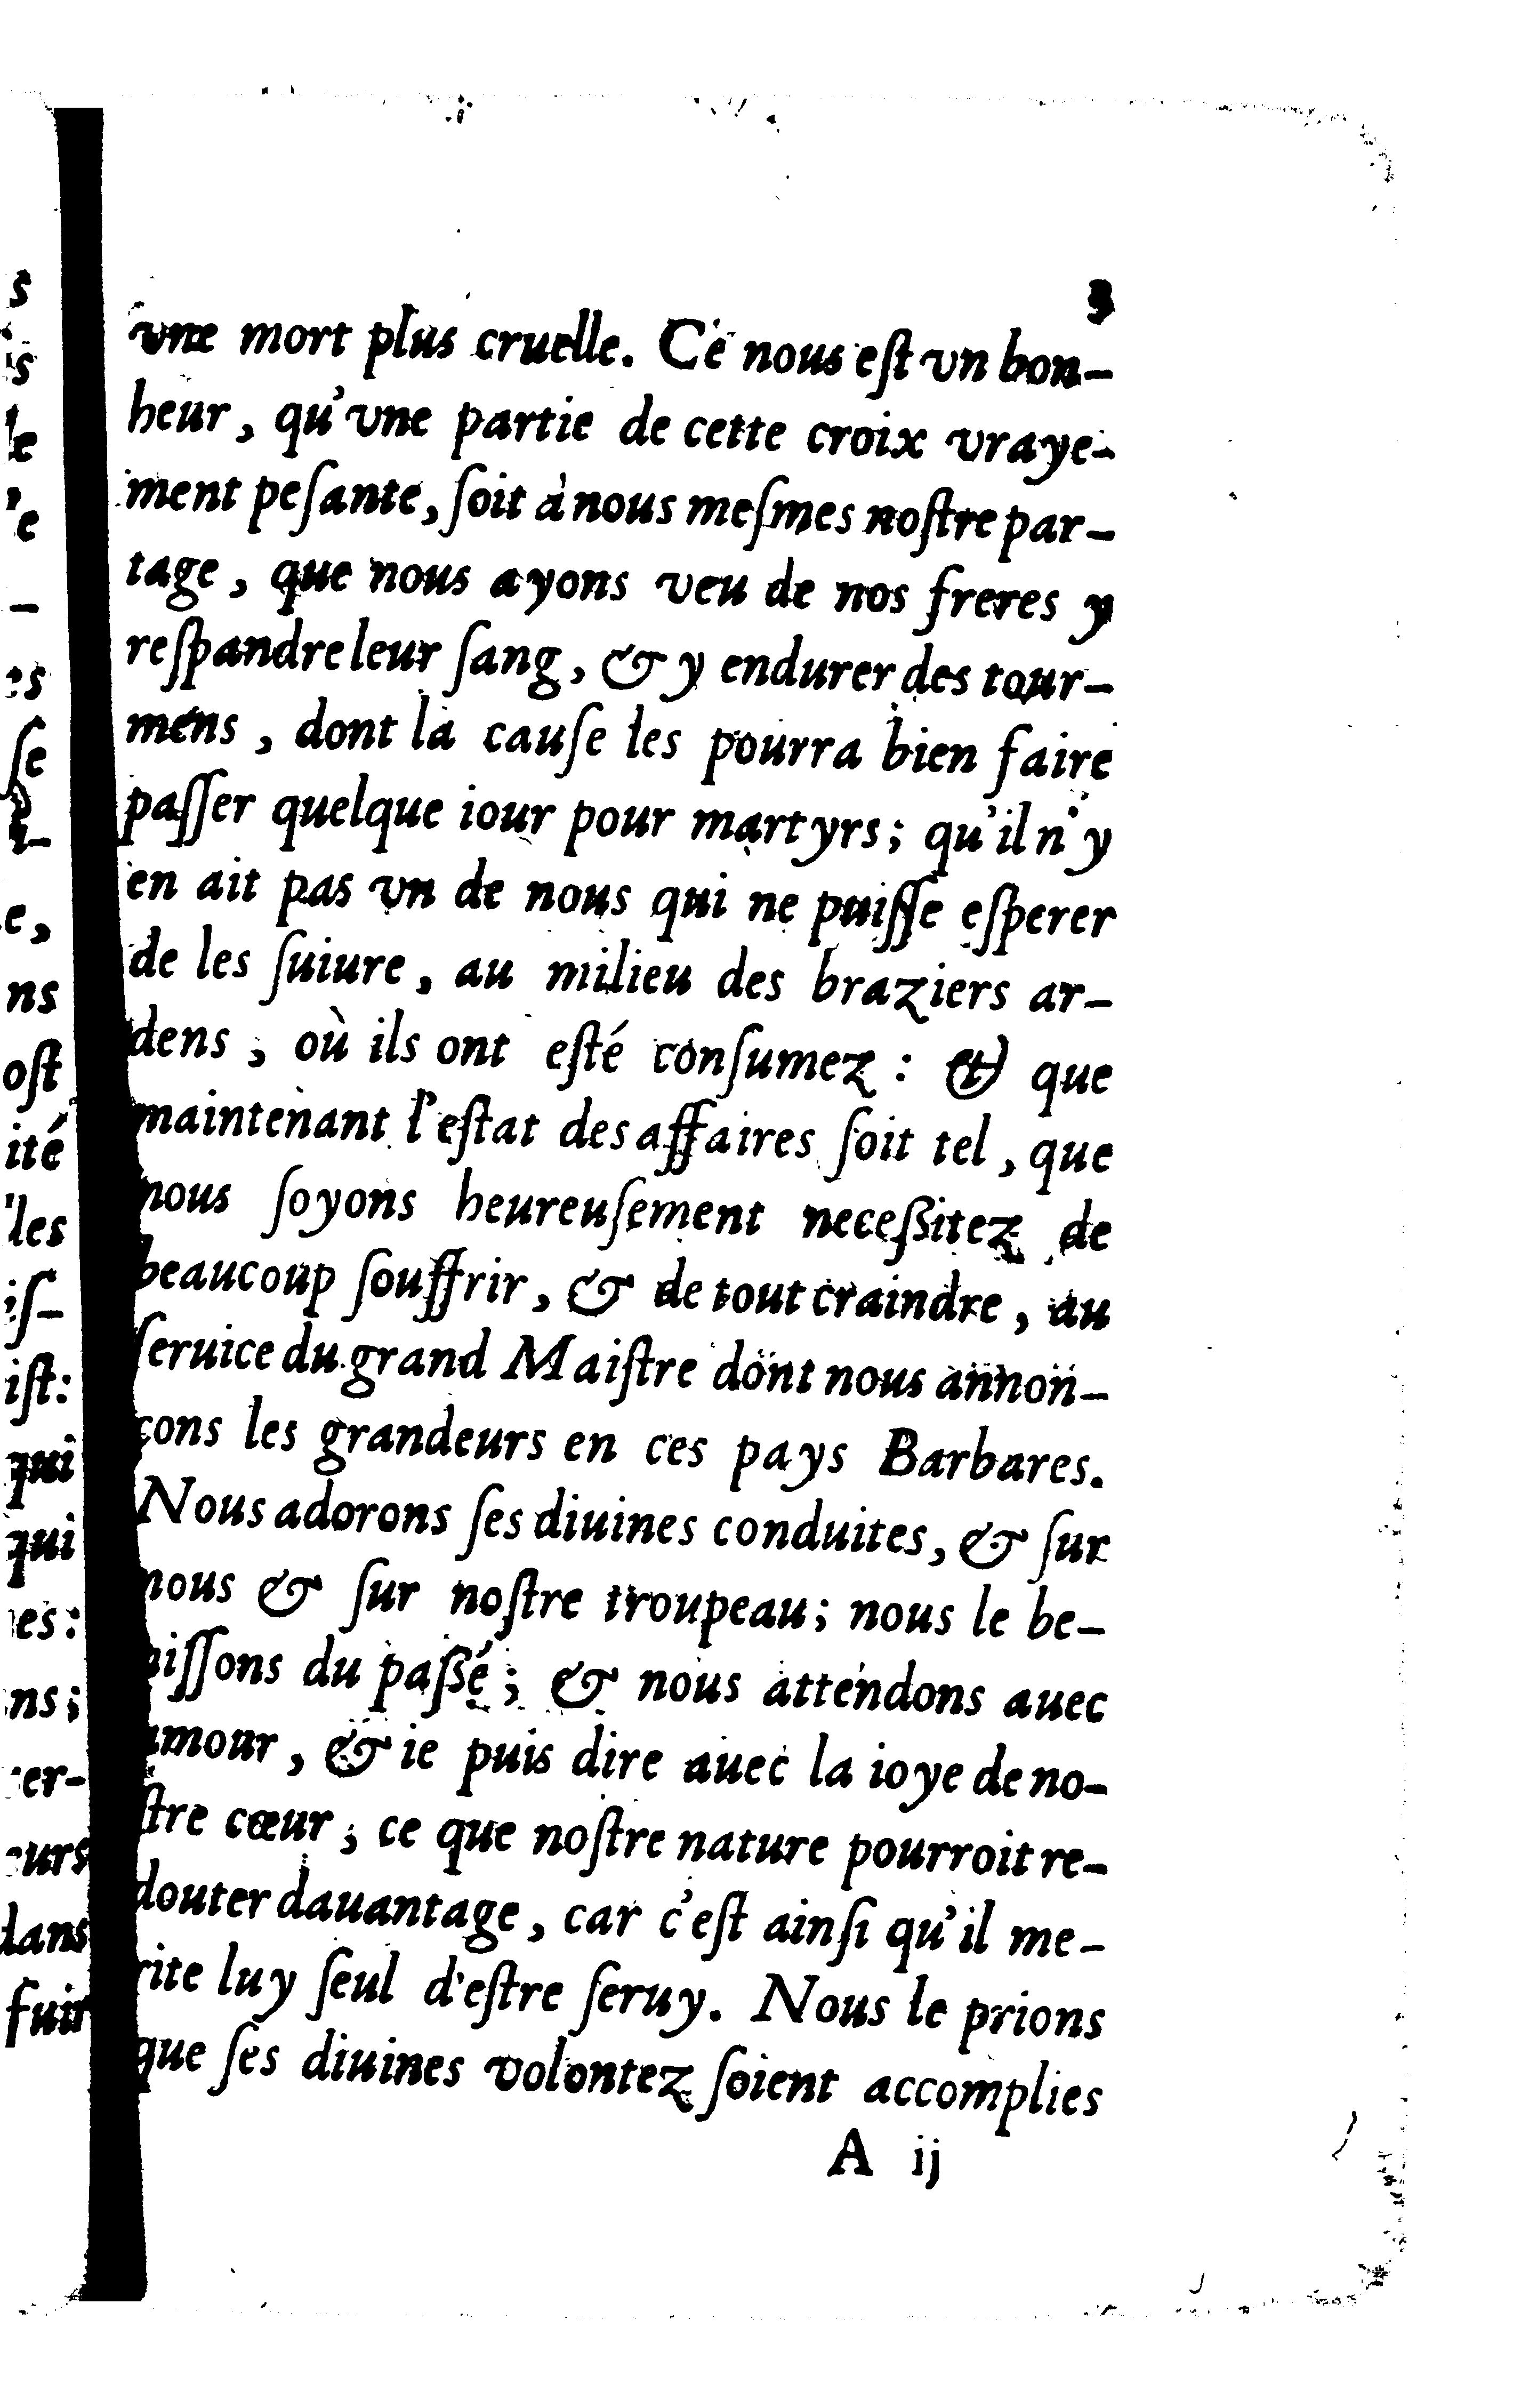 3
vne mort plus cruelle. Ce nous eſt vn bon-
heur, qu'vne partie de cette croix vraye-
ment peſante, ſoit à nous meſmes noſtre par-
tage, que nous ayons veu de nos freres y
reſpandre leur ſang, & y endurer des tour-
mens, dont la cauſe les pourra bien faire
paſſer quelque iour pour martyrs; qu'il n'y
en ait pas vn de nous qui ne puiſſe eſperer
de les ſuiure, au milieu des braziers ar-
dens, où ils ont eſté conſumez: & que
maintenant l'eſtat des affaires ſoit tel, que
nous ſoyons heureuſement neceſſitez de
beaucoup ſouffrir, & de tout craindre, au
ſeruice du grand Maiſtre dont nous annon-
çons les grandeurs en ces pays Barbares.
Nous adorons ſes diuines conduites, & ſur
nous & ſur noſtre troupeau; nous le be-
niſſons du paſſé; & nous attendons auec
amour, & ie puis dire auec la ioye de no-
ſtre cœur, ce que noſtre nature pourroit re-
douter dauantage, car c'eſt ainſi qu'il me-
rite luy ſeul d'eſtre ſeruy. Nous le prions
que ſes diuines volontez ſoient accomplies
A ij